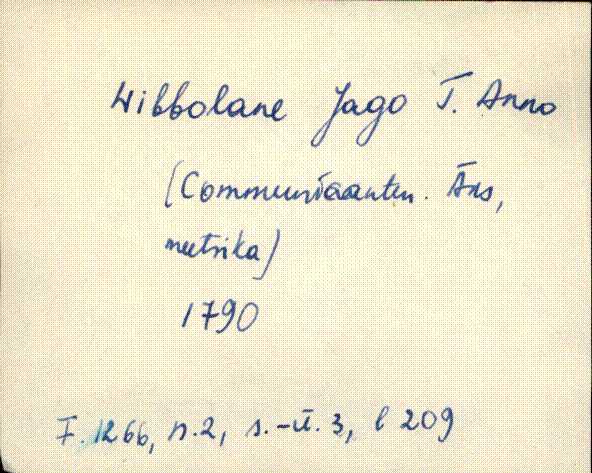 Wibbolane Jago T. Anno
(Communicanten. Ārs,
meetrika)
1790
F. 1266, n. 2, s.-ü. 3, l 209